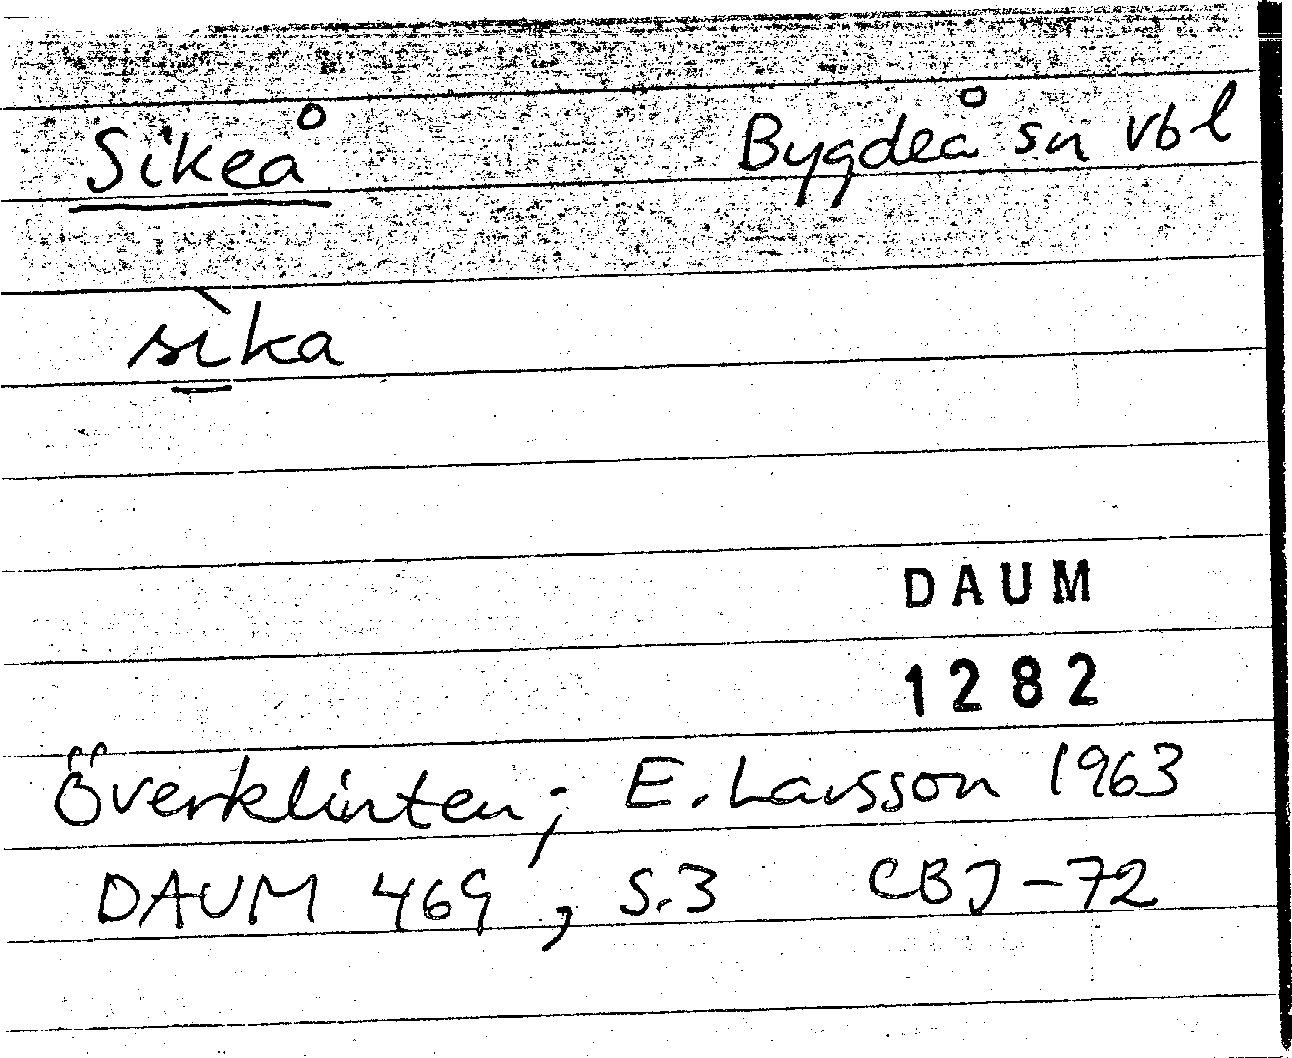 Sikeå Bygdeå sn Vbl
sìka
DAUM
1282
Överklinten; E. Larsson 1963
DAUM 469, s.3 CBJ-72